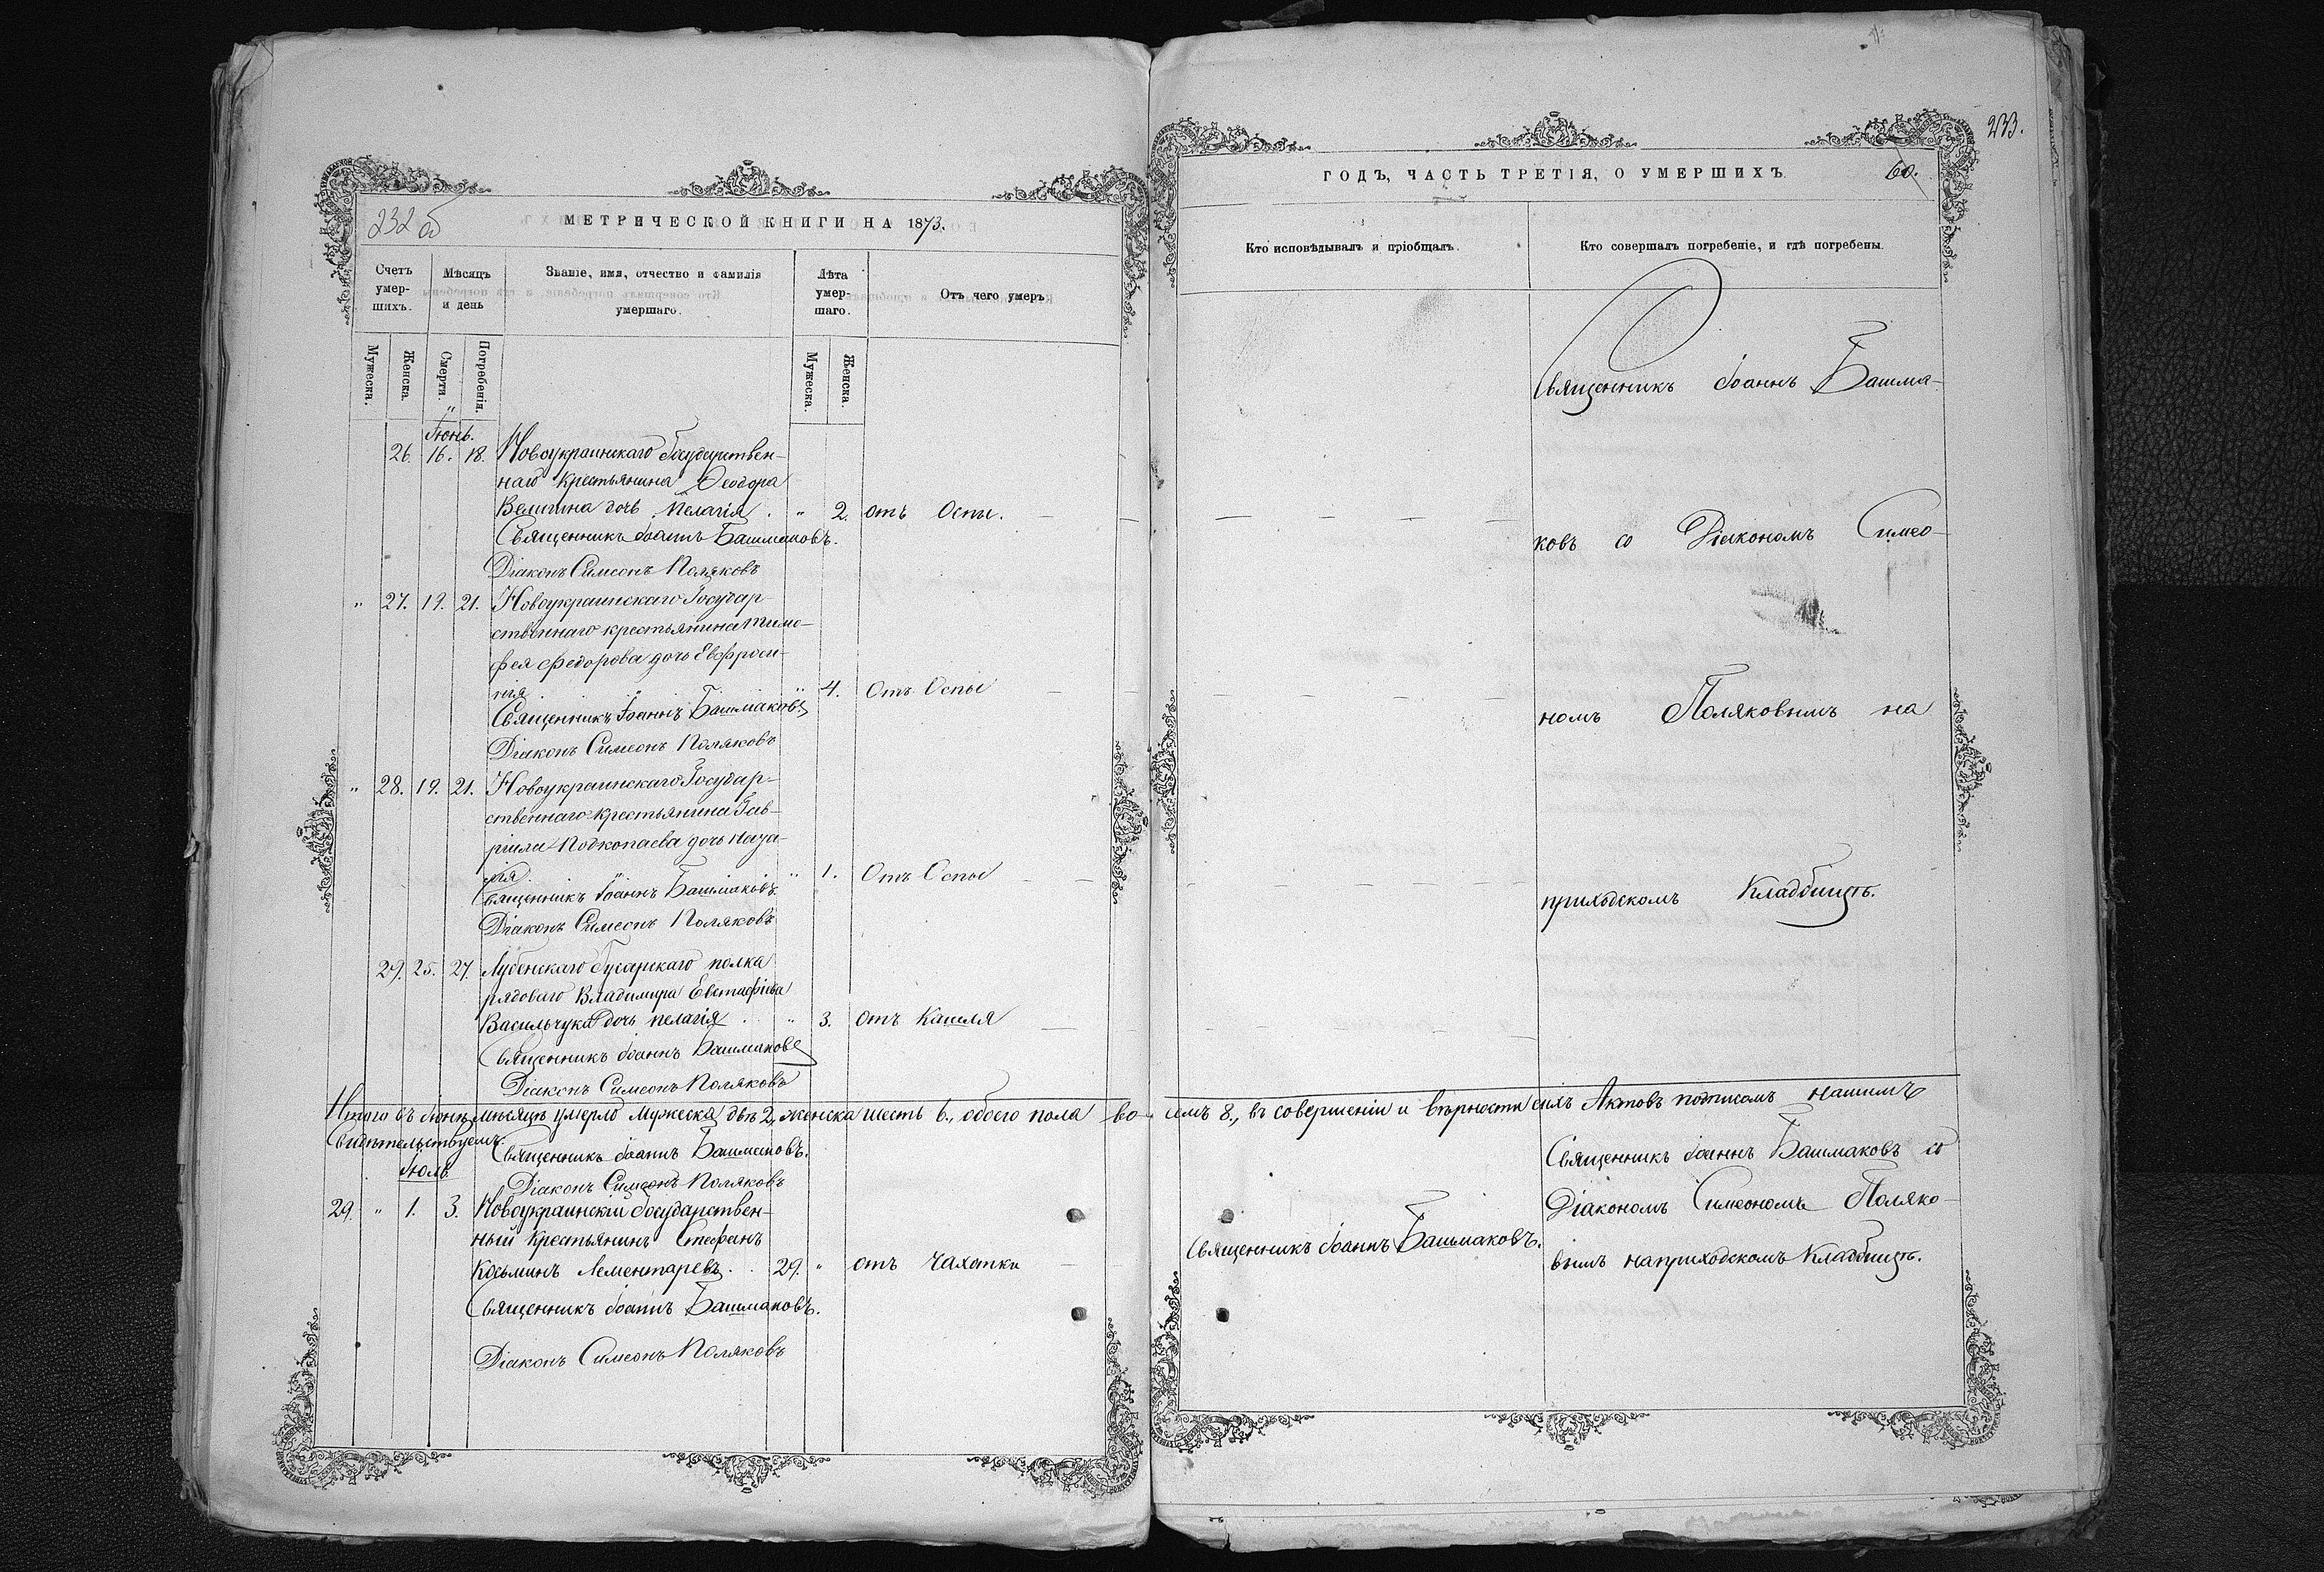 232 об
МЕТРИЧЕСКОЙ КНИГИ НА 1873.
Счетъ умер-шихъ.
Мѣсяцъ и день
Званіе, имя, отчество и фамилія умершаго.
Лѣта умер-шаго.
Отъ чего умеръ
Мужеска.
Женска.
Смерти.
Погребенія.
Мужеска.
Женска.
Іюнь.
26. 16. 18. Новоукраинскаго Государствен-
наго крестьянина Ѳеодора
Велигина дочь Пелагія . " 2. отъ Оспы.
Священникъ Іоаннъ Башмаковъ.
Діаконъ Симеонъ Поляковъ
" 27. 19. 21. Новоукраинскаго Государ-
ственнаго крестьянина Тимо-
фея Федорова дочь Евфроси-
нія " 4. Отъ Оспы
Священникъ Іоаннъ Башмаковъ
Діаконъ Симеонъ Поляковъ
" 28. 19. 21. Новоукраинскаго Государ-
ственнаго крестьянина Гав-
ріила Подкопаева дочь Наза-
рія " 1. Отъ Оспы
Священникъ Іоаннъ Башмаковъ
Діаконъ Симеонъ Поляковъ
29. 25. 27. Лубенскаго Гусарскаго полка
рядоваго Владимира Евстафіева
Васильчука дочь Пелагія . " 3. отъ Кашля
Священникъ Іоаннъ Башмаковъ
Діаконъ Симеонъ Поляковъ
Итого въ Іюнѣ мѣсяцѣ умерло Мужеска двѣ 2, женска шесть 6., обоего пола во-
свидѣтельствуемъ.
Священникъ Іоаннъ Башмаковъ.
Діаконъ Симеонъ Поляковъ
Іюль
29. " 1. 3. Новоукраинскій Государствен-
ный крестьянинъ Стефанъ
Косьминъ Лементаревъ . . 29. " отъ Чахотки
Священникъ Іоаннъ Башмаковъ.
Діаконъ Симеонъ Поляковъ
233.
ГОДЪ, ЧАСТЬ ТРЕТІЯ, О УМЕРШИХЪ.
60.
Кто исповѣдывалъ и пріобщалъ.
Кто совершалъ погребеніе, и гдѣ погребены.
Священникъ Іоаннъ Башма-
ковъ со Діакономъ Симео-
номъ Поляковымъ на
приходскомъ Кладбищѣ.
семъ 8., въ совершеніи и вѣрности сихъ Актовъ подписомъ нашимъ
Священникъ Іоаннъ Башмаковъ.
Священникъ Іоаннъ Башмаковъ со
Діакономъ Симеономъ Поляко-
вымъ на приходскомъ Кладбищѣ.